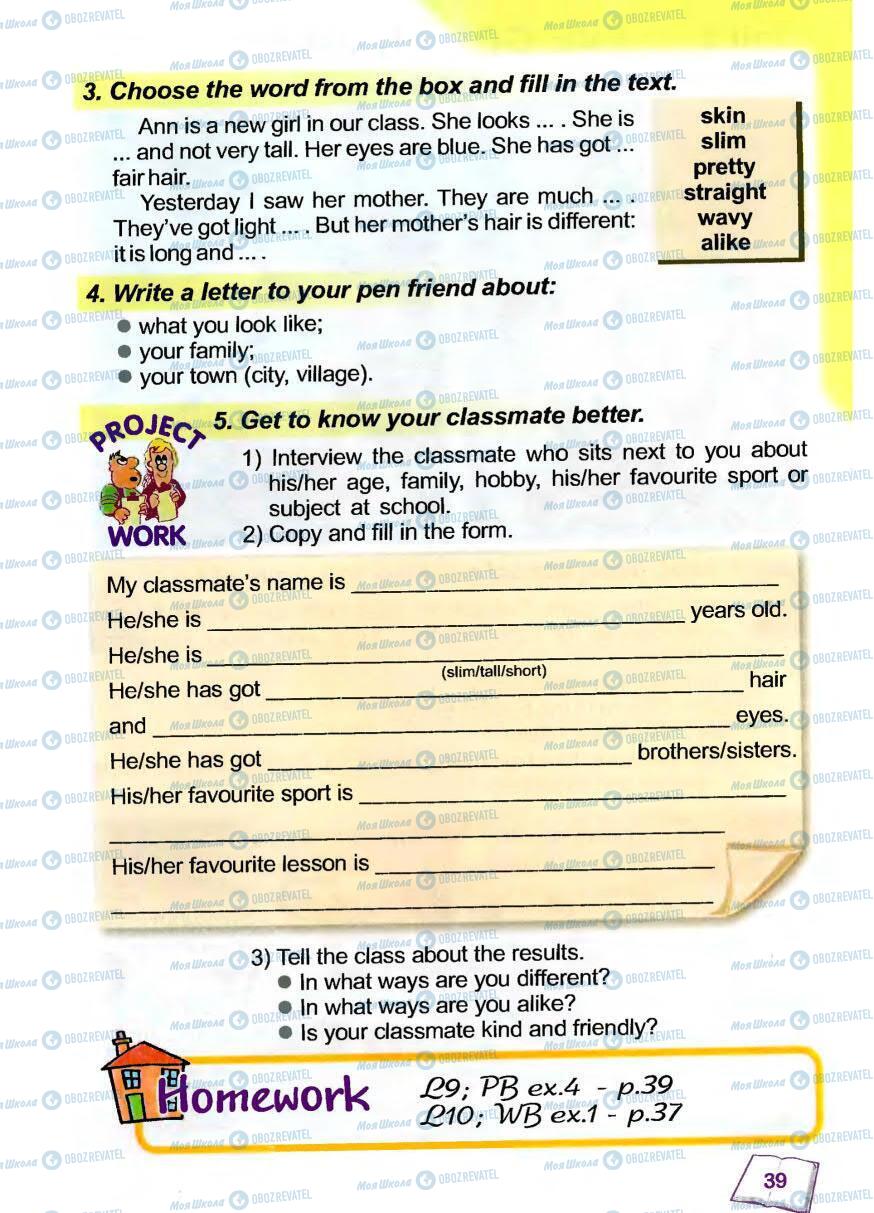 3. Choose the word from the box and fill in the text.
Ann is a new girl in our class. She looks ... . She is
... and not very tall. Her eyes are blue. She has got ...
fair hair.
Yesterday I saw her mother. They are much ... .
They've got light ... . But her mother's hair is different:
it is long and ... .
skin
slim
pretty
straight
wavy
alike
4. Write a letter to your pen friend about:
● what you look like;
● your family;
● your town (city, village).
PROJECT
WORK
5. Get to know your classmate better.
1) Interview the classmate who sits next to you about
his/her age, family, hobby, his/her favourite sport or
subject at school.
2) Copy and fill in the form.
My classmate's name is
He/she is years old.
He/she is
(slim/tall/short)
He/she has got hair
and eyes.
He/she has got brothers/sisters.
His/her favourite sport is
His/her favourite lesson is
3) Tell the class about the results.
● In what ways are you different?
● In what ways are you alike?
● Is your classmate kind and friendly?
Homework
L9; PB ex.4 - p.39
L10; WB ex.1 - p.37
39
Моя Школа OBOZREVATEL